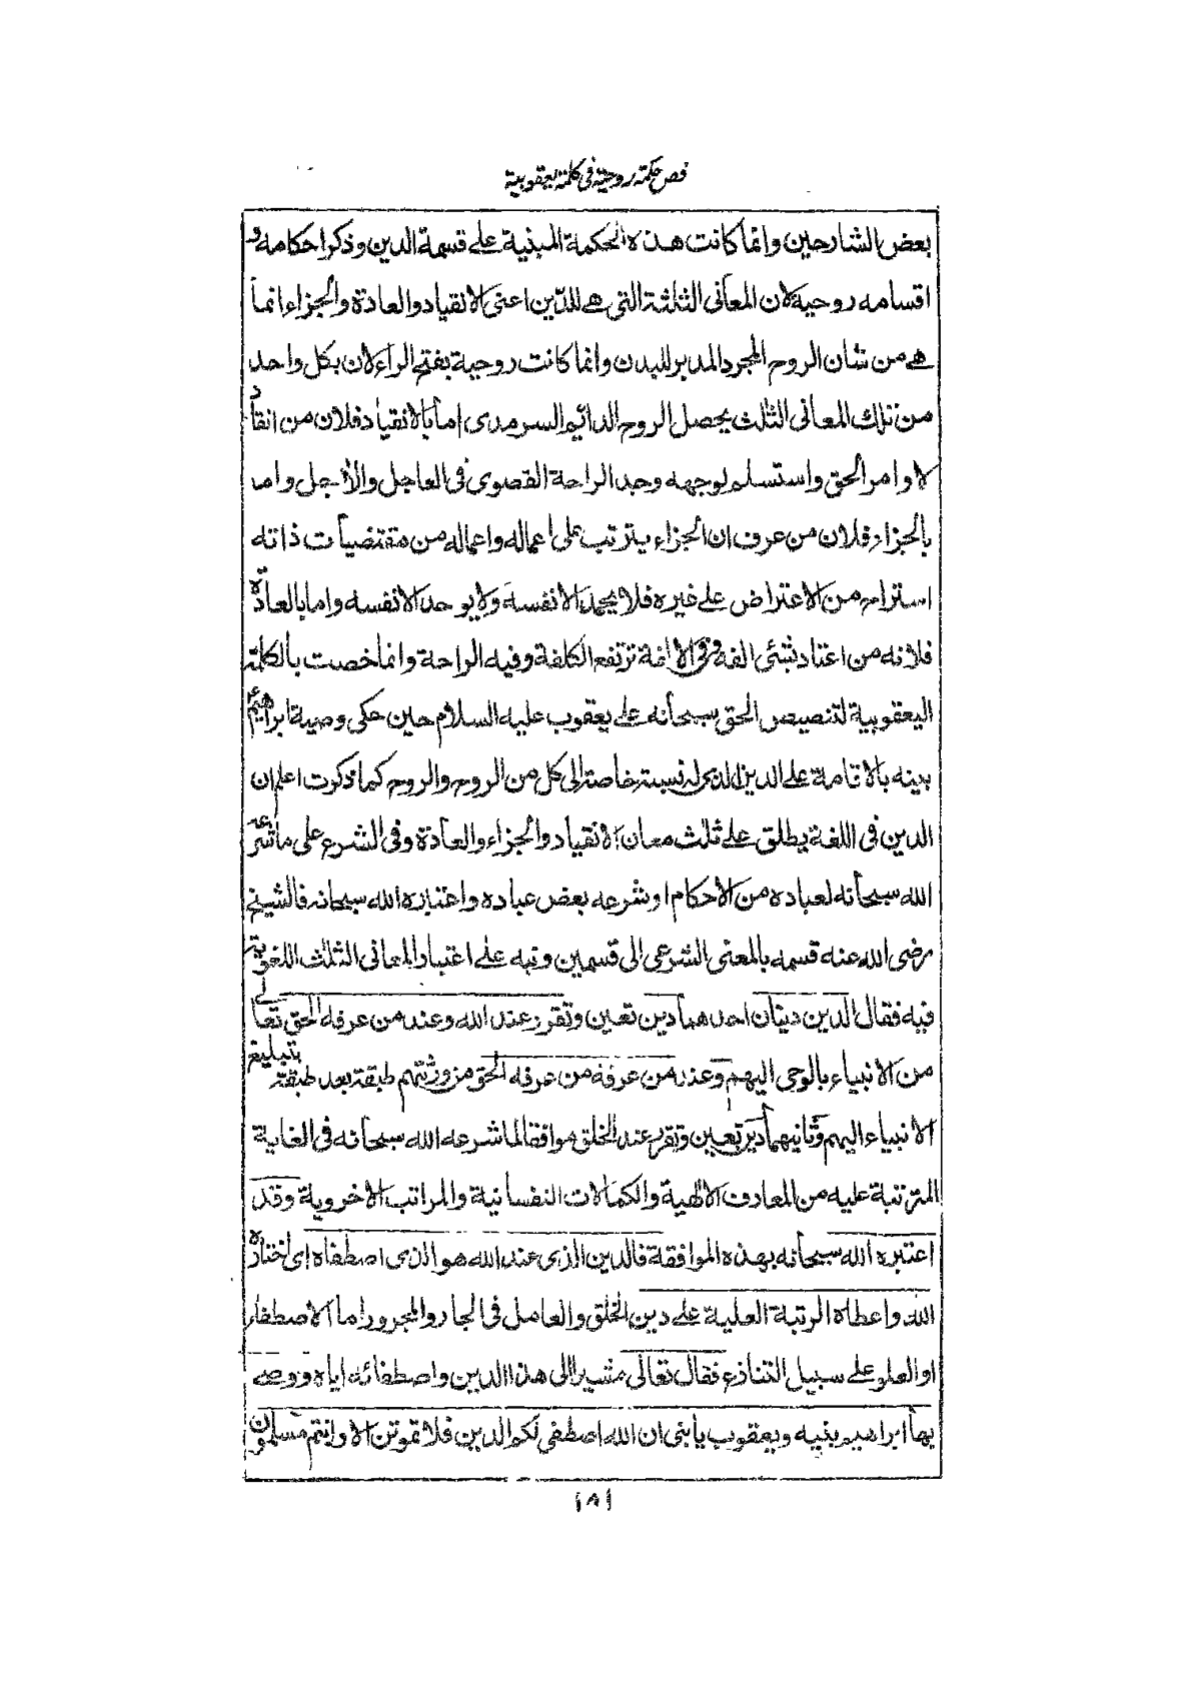 فص حكمة روحية في كلمة يعقوبية
بعض الشارحين وانما كانت هذه الحكمة المبنية على قسمة الدين وذكر احكامه و
اقسامه روحية لان المعانى الثلثة التى هى للدين اعنى الانقياد والعادة والجزاء انما
هى من شان الروح المجرد المدبر للبدن وانما كانت روحية بفتح الراء لان بكل واحد
من تلك المعانى الثلث يحصل الروح الدائم السرمدى اما بالانقياد فلان من انقاد
لاوامر الحق واستسلم لوجهه وجد الراحة القصوى فى العاجل والأجل واما
بالجزاء فلان من عرف ان الجزاء يترتب على اعماله واعماله من مقتضيات ذاته
استراح من الاعتراض على غيره فلا يحمد الا نفسه ولا يوحد الا نفسه واما بالعادة
فلانه من اعتاد بشئى الفه وفى الالفة ترتفع الكلفة وفيه الراحة وانما خصت بالكلمة
اليعقوبية لتنصيص الحق سبحانه على يعقوب عليه السلام حين حكى وصية ابراهيم
بنيه بالاقامة على الدين الذى له نسبة خاصة الى كل من الروح والروح كما ذكرت اعلم ان
الدين فى اللغة يطلق على ثلث معان الانقياد والجزاء والعادة وفى الشرع على ما شرعه
الله سبحانه لعباده من الاحكام او شرعه بعض عباده واعتبره الله سبحانه فالشيخ
رضى الله عنه قسمه بالمعنى الشرعى الى قسمين ونبه على اعتبار المعانى الثلث اللغوية
فيه فقال الدين دينان احدهما دين تعين وتقرر عند الله وعند من عرفه الحق تعالى
من الانبياء بالوحى اليهم وعند من عرفه من عرفه الحق من ورثتهم طبقة بعد طبقة بتبليغ
الانبياء اليهم وثانيهما دين تعين وتقرر عند الخلق موافقا لما شرعه الله سبحانه فى الغاية
المترتبة عليه من المعارف الالهية والكمالات النفسانية والمراتب الاخروية وقد
اعتبره الله سبحانه بهذه الموافقة فالدين الذى عند الله هو الذى اصطفاه اى اختاره
الله واعطاه الرتبة العلية على دين الخلق والعامل فى الجار والمجرور اما الاصطفاء
او العلو على سبيل التنازع فقال تعالى مشيرا الى هذا الدين واصطفائه اياه ووصى
بها ابراهيم بنيه ويعقوب يا بنى ان الله اصطفى لكم الدين فلا تموتن الا وانتم مسلمون
١٨١